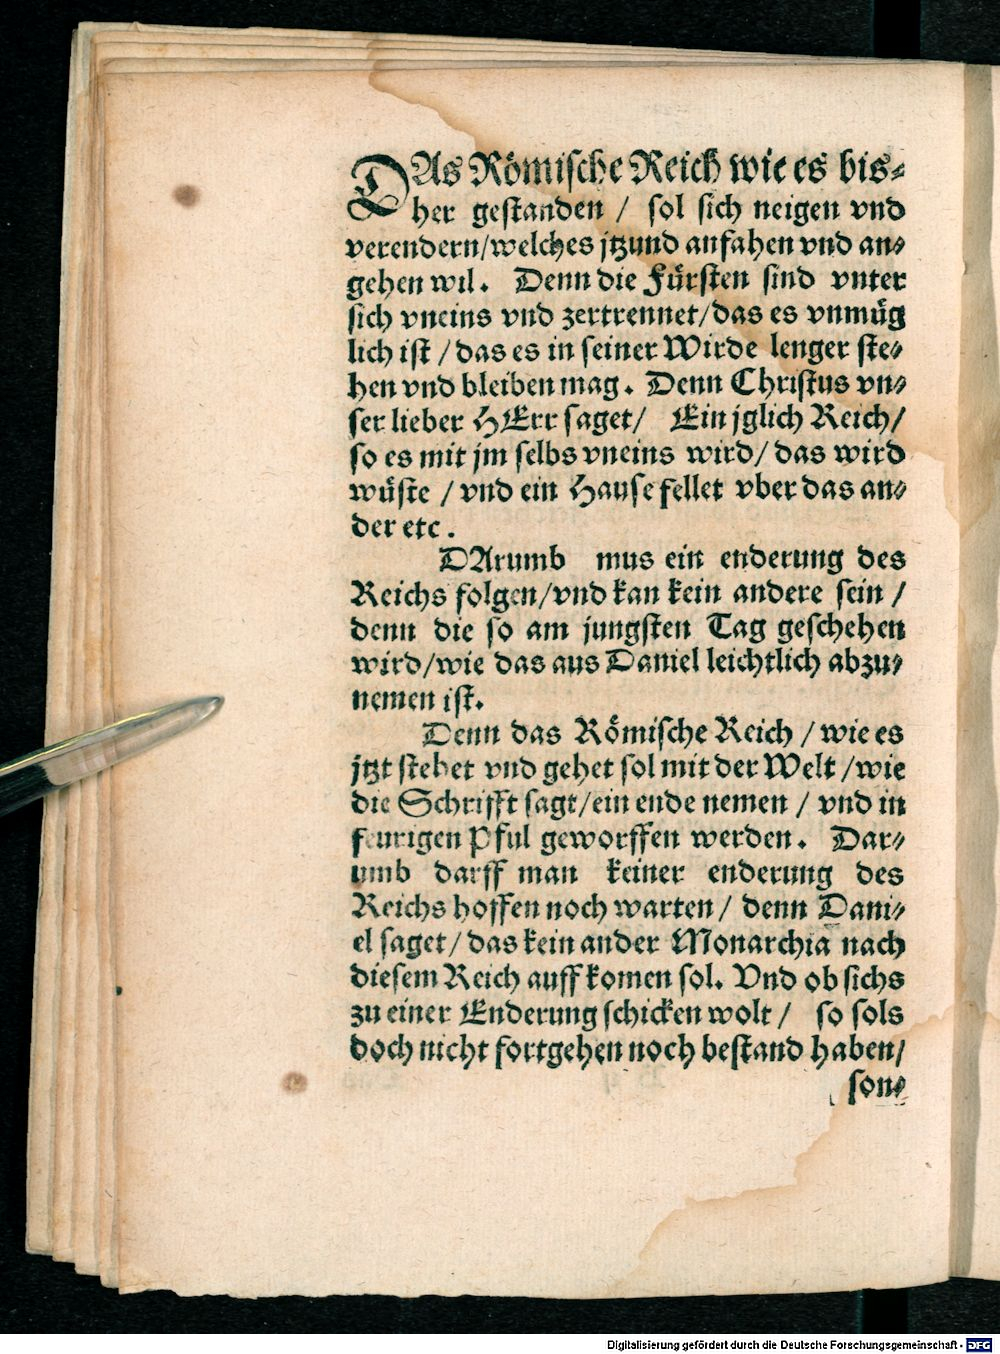 DAs Römische Reich wie es bis⸗
her gestanden / sol sich neigen vnd
verendern/welches jtzund anfahen vnd an⸗
gehen wil. Denn die Fürsten sind vnter
sich vneins vnd zertrennet/das es vnmüg
lich ist / das es in seiner Wirde lenger ste⸗
hen vnd bleiben mag. Denn Christus vn⸗
ser lieber HErr saget/ Ein jglich Reich/
so es mit jm selbs vneins wird/ das wird
wüste / vnd ein Hause fellet vber das an⸗
der etc.
DArumb mus ein enderung des
Reichs folgen/vnd kan kein andere sein /
denn die so am jungsten Tag geschehen
wird/wie das aus Daniel leichtlich abzu⸗
nemen ist.
Denn das Römische Reich / wie es
jtzt stehet vnd gehet sol mit der Welt /wie
die Schrifft sagt/ein ende nemen / vnd in
feurigen Pful geworffen werden. Dar⸗
umb darff man keiner enderung des
Reichs hoffen noch warten / denn Dani⸗
el saget/ das kein ander Monarchia nach
diesem Reich auff komen sol. Vnd ob sichs
zu einer Enderung schicken wolt / so sols
doch nicht fortgehen noch bestand haben/
son⸗
Digitalisierung gefördert durch die Deutsche Forschungsgemeinschaft - DFG